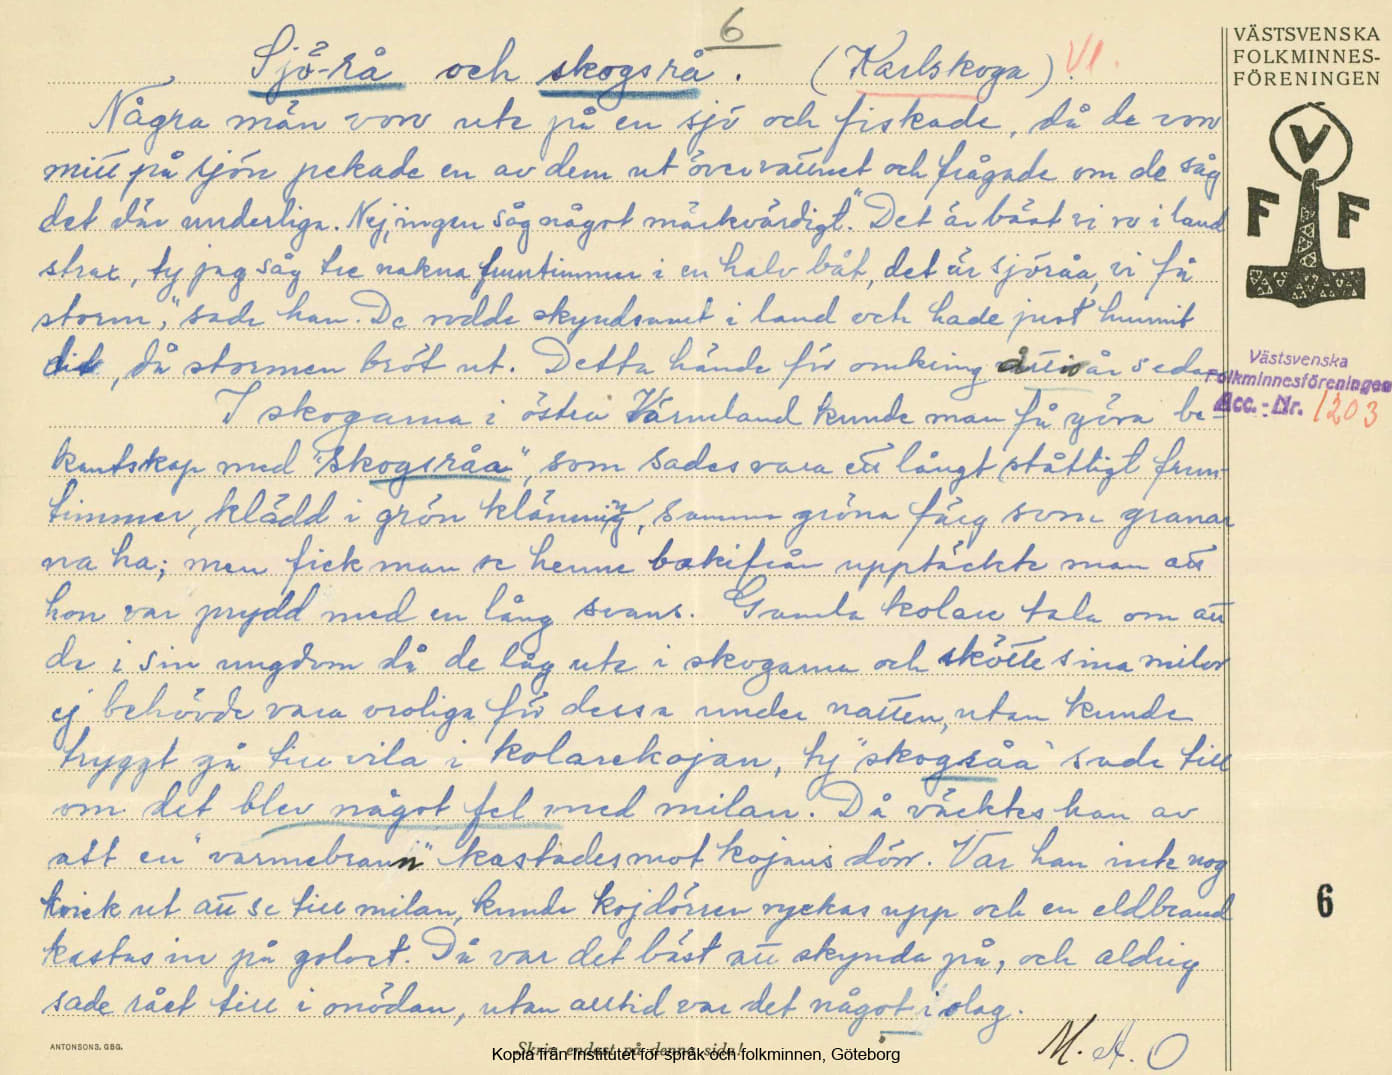 6
Sjö-rå och skogsrå. (Karlskoga) VI.
Några män voro ute på en sjö och fiskade, då de voro
mitt på sjön pekade en av dem ut över vattnet och frågade om de såg
det där underliga. Nej, ingen såg något märkvärdigt. "Det är bäst vi ro i land
strax, ty jag såg tre nakna fruntimmer i en halv båt, det är sjöråa, vi få
storm," sade han. De rodde skyndsamt i land och hade just hunnit
dit, då stormen bröt ut. Detta hände för omkring år sedan
I skogarna i östra Värmland kunde man få göra be-
kantskap med "skogsråa", som sades vara ett långt ståttligt frun-
timmer, klädd i grön klänning, samma gröna färg som granar
na ha; men fick man se henne bakifrån upptäckte man att
hon var prydd med en lång svans. Gamla kolare tala om att
de i sin ungdom då de låg ute i skogarna och skötte sina milor
ej behövde vara oroliga för dessa under natten, utan kunde
tryggt gå till vila i kolarekojan, ty "skogsåa" sade till
om det blev något fel med milan. Då väcktes han av
att en "varmebrann" kastades mot kojans dörr. Var han inte nog
kvick ut att se till milan, kunde kojdörren ryckas upp och en eldbrand
kastas in på golvet. Då var det bäst att skynda på, och aldrig
sade rået till i onödan, utan alltid var det något i olag.
M. A. O
VÄSTSVENSKA
FOLKMINNES-
FÖRENINGEN
V
F F
Västsvenska
Folkminnesföreningen
Acc.-Nr. 1203
6
ANTONSONS, GBG.
Skriv endast på denna sida!
Kopia från Institutet för språk och folkminnen, Göteborg